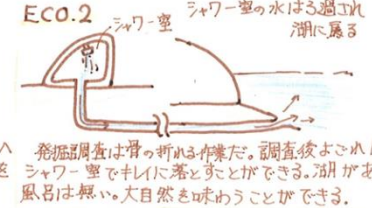 ECO.2
シャワー室
シャワー室の水はろ過され
湖に戻る
発掘調査は骨の折れる作業だ。調査後よごれ
シャワー室でキレイに落とすことができる。湖があ
風呂は無い。大自然を味わうことができる。